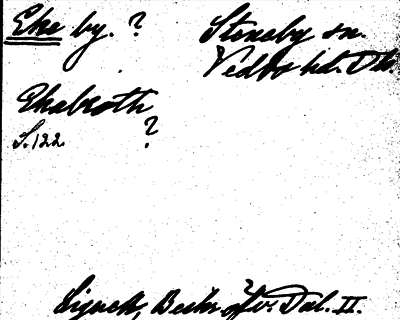 Eke by. ? Steneby sn.
Vedbo hd. Dls.
Ekabroth
S. 122 ?
Signeth, Beskr. öfv. Dal. II.